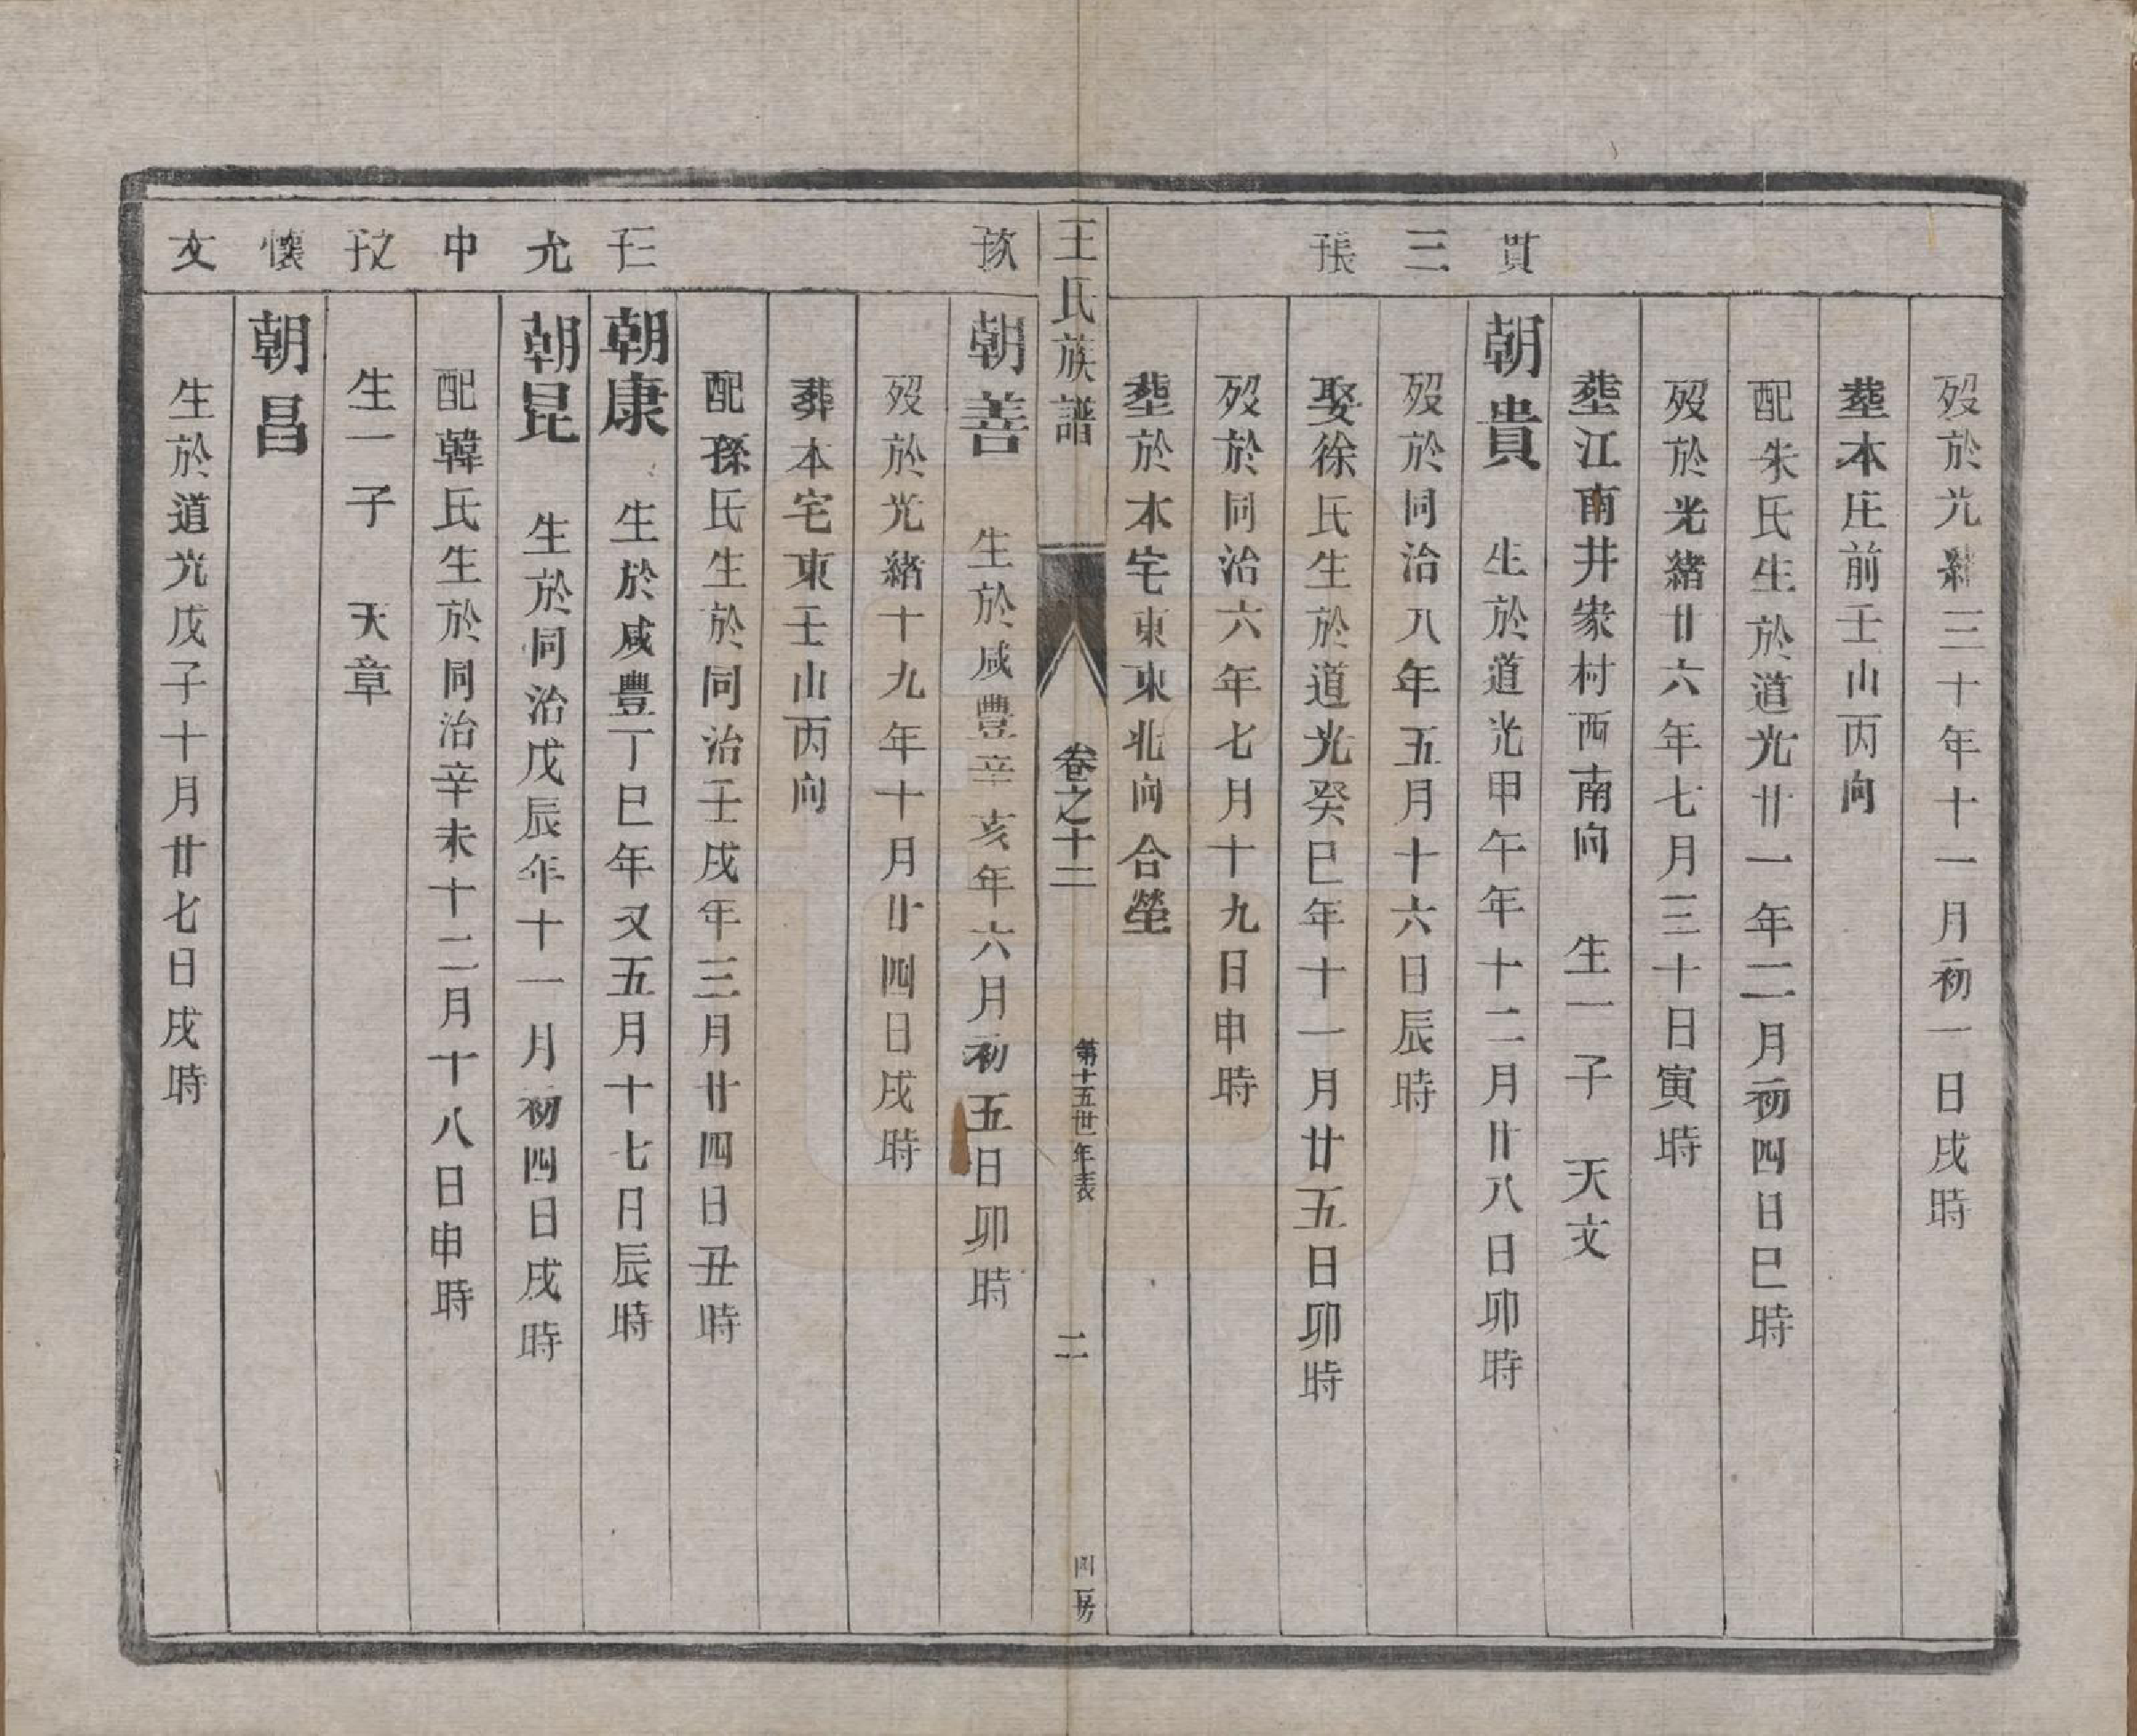 歿於光緒三十年十一月初一日戌時
葬本庄前壬山丙向
配朱氏生於道光廿一年二月初四日巳時
歿於光緒廿六年七月三十日寅時
葬江南井家村西南向 生一子 天文
貫 朝貴 生於道光甲午年十二月廿八日卯時
三 歿於同治八年五月十六日辰時
張 娶徐氏生於道光癸巳年十一月廿五日卯時
歿於同治六年七月十九日申時
葬於本宅東東北向合塋
王氏族譜 卷之十二 第十五世年表 二 四房
朝善 生於咸豐辛亥年六月初五日卯時
歿於光緒十九年十月廿四日戌時
葬本宅東壬山丙向
配孫氏生於同治壬戌年三月廿四日丑時
三子 朝康 生於咸豐丁巳年又五月十七日辰時
允 朝昆 生於同治戊辰年十一月初四日戌時
中 配韓氏生於同治辛未十二月十八日申時
生一子 天章
懷 朝昌
文 生於道光戊子十月廿七日戌時